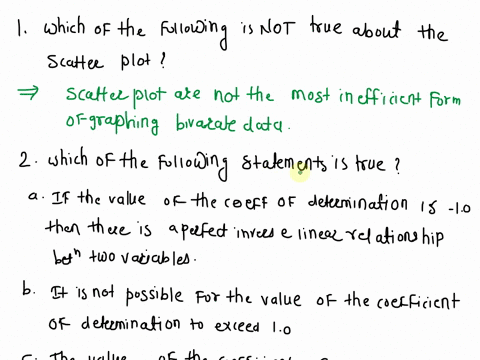 1. Which of the following is NOT true about the
Scatter plot ?
⇒ Scatter plot are not the most inefficient form
of graphing bivarate data.
2. Which of the following statements is true ?
a. If the value of the coeff of determination is -1.0
then there is a perfect inverse linear relationship
betⁿ two variables.
b. It is not possible for the value of the coefficient
of determination to exceed 1.0